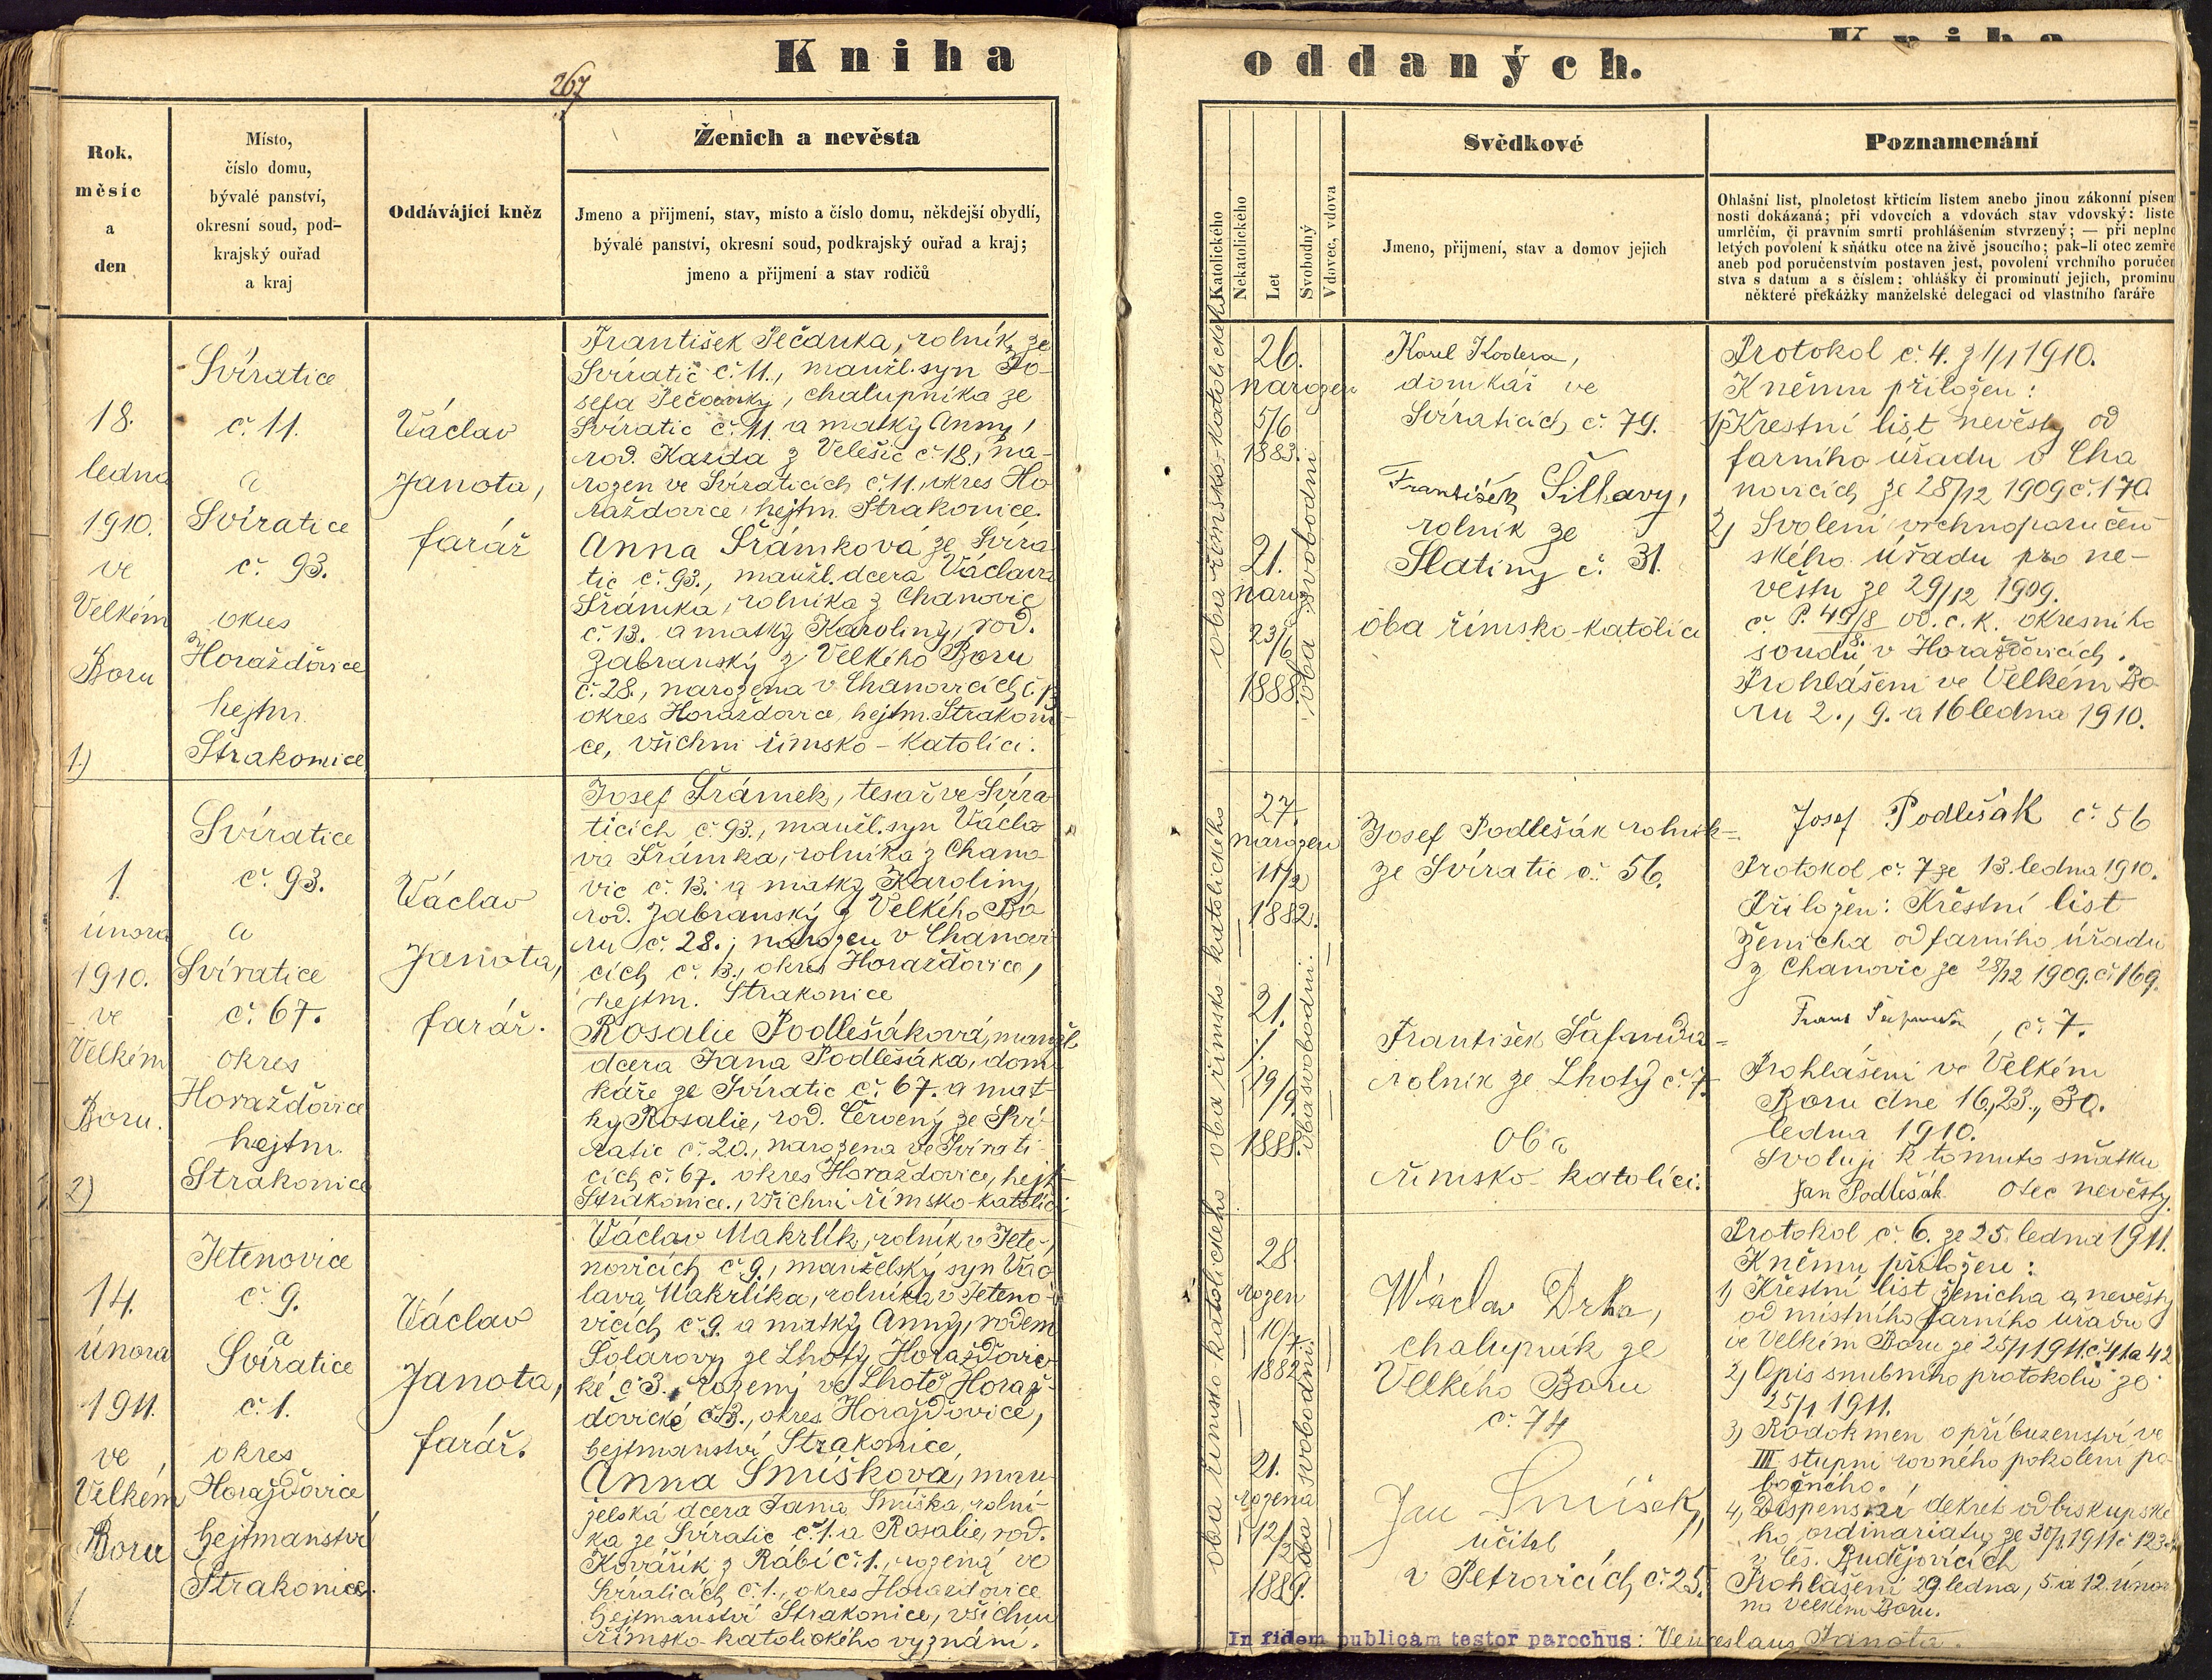 Kniha
267
Rok,
měsíc
a
den
Místo,
číslo domu,
bývalé panství,
okresní soud, pod-
krajský ouřad
a kraj
Oddávající kněz
Ženich a nevěsta
Jmeno a přijmení, stav, místo a číslo domu, někdejší obydlí,
bývalé panství, okresní soud, podkrajský ouřad a kraj;
jmeno a přijmení a stav rodičů
18.
ledna
1910.
ve
Velkém
Boru
1.)
Svíratice
č. 11.
a
Svíratice
č. 93.
okres
Horažďovice
hejtm.
Strakonice
Václav
Janota,
farář
František Pečanka, rolník ze
Svíratic č. 11., manžl. syn Jo-
sefa Pečanky, chalupníka ze
Svíratic č. 11. a matky Anny,
rod. Kazda z Velešic č. 18., na-
rozen ve Svíraticích č. 11., okres Ho
raždovice, hejtm. Strakonice.
Anna Šrámková ze Svíra
tic č. 93., manžl. dcera Václava
Šrámka, rolníka z Chanovic
č. 13. a matky Karoliny, rod.
Zabranský z Velkého Boru
č. 28., narozena v Chanovicích č. 13
okres Horaždovice, hejtm. Strakoni-
ce, všichni římsko-katolíci.
1.
února
1910.
ve
Velkém
Boru.
2)
Svíratice
č. 93.
a
Svíratice
č. 67.
okres
Horaždovice
hejtm.
Strakonice
Václav
Janota,
farář.
Josef Šrámek, tesař ve Svíra
ticích č. 93., manžl. syn Václa
va Šrámka, rolníka z Chano-
vic č. 13. a matky Karoliny,
rod. Zabranský z Velkého Bo
ru č. 28.; narozen v Chanovi
cích č. 13., okres Horažďovice,
hejtm. Strakonice
Rosalie Podlešáková, manžl.
dcera Jana Podlešáka, dom
káře ze Svíratic č. 67. a mat-
ky Rosalie, rod. Červený ze Sví-
ratic č. 20., narozena ve Svírati-
cích č. 67. okres Horaždovice, hejt
Strakonice., všichni římsko-katolíci
14.
února
1911.
ve
Velkém
Boru
Jetenovice
č. 9.
a
Svíratice
č. 1.
okres
Horažďovice
hejtmanství
Strakonice.
Václav
Janota,
farář.
Václav Makrlík, rolník v Jete-
novicích č. 9., manželský syn Vác
lava Makrlíka, rolníka v Jeteno-
vicích č. 9. a matky Anny, rodem
Solárovy ze Lhoty Horažďovic
ké č. 3. rozený ve Lhotě Horaž-
ďovické č. 3., okres Horažďovice,
hejtmanství Strakonice,
Anna Smíšková, man-
želská dcera Jana Smíška, rolní-
ka ze Svíratic č. 1. a Rosalie, rod.
Kovářík z Rábí č. 1., rozená ve
Svíraticích č. 1., okres Horaždovice
hejtmanství Strakonice, všichni
římsko-katolického vyznání.
oddaných.
Katolického
Nekatolického
Let
Svobodný
Vdovec, vdova
Svědkové
Jmeno, přijmení, stav a domov jejich
Poznamenání
Ohlašní list, plnoletost křticím listem anebo jinou zákonní písem
nosti dokázaná; při vdovcích a vdovách stav vdovský: liste
umrlčím, či právním smrti prohlášením stvrzený; — při neplno
letých povolení k sňátku otce na živě jsoucího; pak-li otec zemře
aneb pod poručenstvím postaven jest, povolení vrchního poručen
stva s datum a s číslem; ohlášky či prominutí jejich, prominu
některé překážky manželské delegaci od vlastního faráře
oba římsko-katolického
26.
narozen
5/6
1883.
21.
naroz
23/6
1888.
oba svobodni
Karel Kodera,
domkář ve
Svíraticích č. 79.
František Šillavy,
rolník ze
Slatiny č. 31.
oba římsko-katolíci
Protokol č. 4. z 1/1 1910.
K němu přiložen:
1) Křestní list nevěsty od
farního úřadu v Cha
novicích ze 28/12 1909 č. 170.
2) Svolení vrchnoporučen
ského úřadu pro ne-
věstu ze 29/12 1909.
č. P. 49/8 od c. k. okresního
8.
soudu v Horažďovicích.
Prohlášeni ve Velkém Bo
ru 2., 9. a 16 ledna 1910.
oba římsko-katolického
27.
narozen
11/2
1882.
21.
19/9.
1888.
oba svobodni.
Josef Podlešák rolník
ze Svíratic č. 56.
František Šafanda
rolník ze Lhoty č. 7.
oba
římsko-katolíci.
Josef Podlešák č. 56
Protokol č. 7 ze 13. ledna 1910.
Přiložen: Křestní list
ženicha od farního úřadu
z Chanovic ze 28/12 1909. č. 169.
č. 7.
Prohlášeni ve Velkém
Boru dne 16., 23., 30.
ledna 1910.
Svoluji k tomuto sňatku
Jan Podlešák otec nevěsty.
oba římsko-katolického
28.
rozen
10/7.
1882.
21.
rozena
12/2
1889.
oba svobodni.
Wáclav Drha,
chalupník ze
Velkého Boru
č. 74
Jan Smíšek,
učitel
v Petrovicích č. 25.
Protokol č. 6. ze 25. ledna 1911.
K němu přiložen:
1) Křestní list ženicha a nevěsty
od místního farního úřadu
ve Velkém Boru ze 25/1 1911. č. 41 a 42
2) Opis snubního protokolu ze
25/1 1911.
3) Rodokmen o příbuzenství ve
III. stupni rovného pokolení po-
bočného.
4) Dispensní dekret od biskupské
ho ordinariatu ze 30/1 1911 č. 123
v Čes. Budějovicích
Prohlášení 29. ledna, 5. a 12. únor
na Velkém Boru.
In fidem publicam testor parochus: Venceslaus Janota.